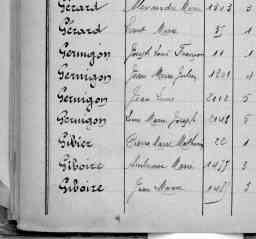 Gérard Alexandre Marie 1203 3
Gérard Louis Marie 5 1
Germigon Joseph Louis François 11 1
Germigon Jean Marie Julien 1201 4
Germigon Jean Louis 2002 5
Germigon Louis Marie Joseph 2048 5
Gibier Pierre Marie Mathurin 22 1
Giboire Guillaume Marie 1457 3
Giboire Jean Marie 1457 3